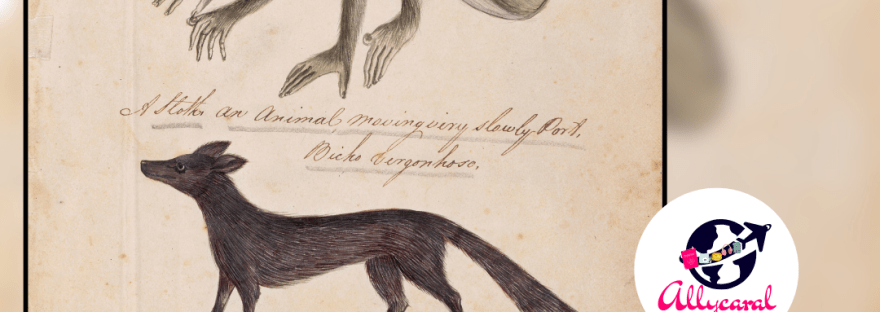 A Sloth an Animal, moving very slowly Port.
Bicho vergonhoso.
Allycaral